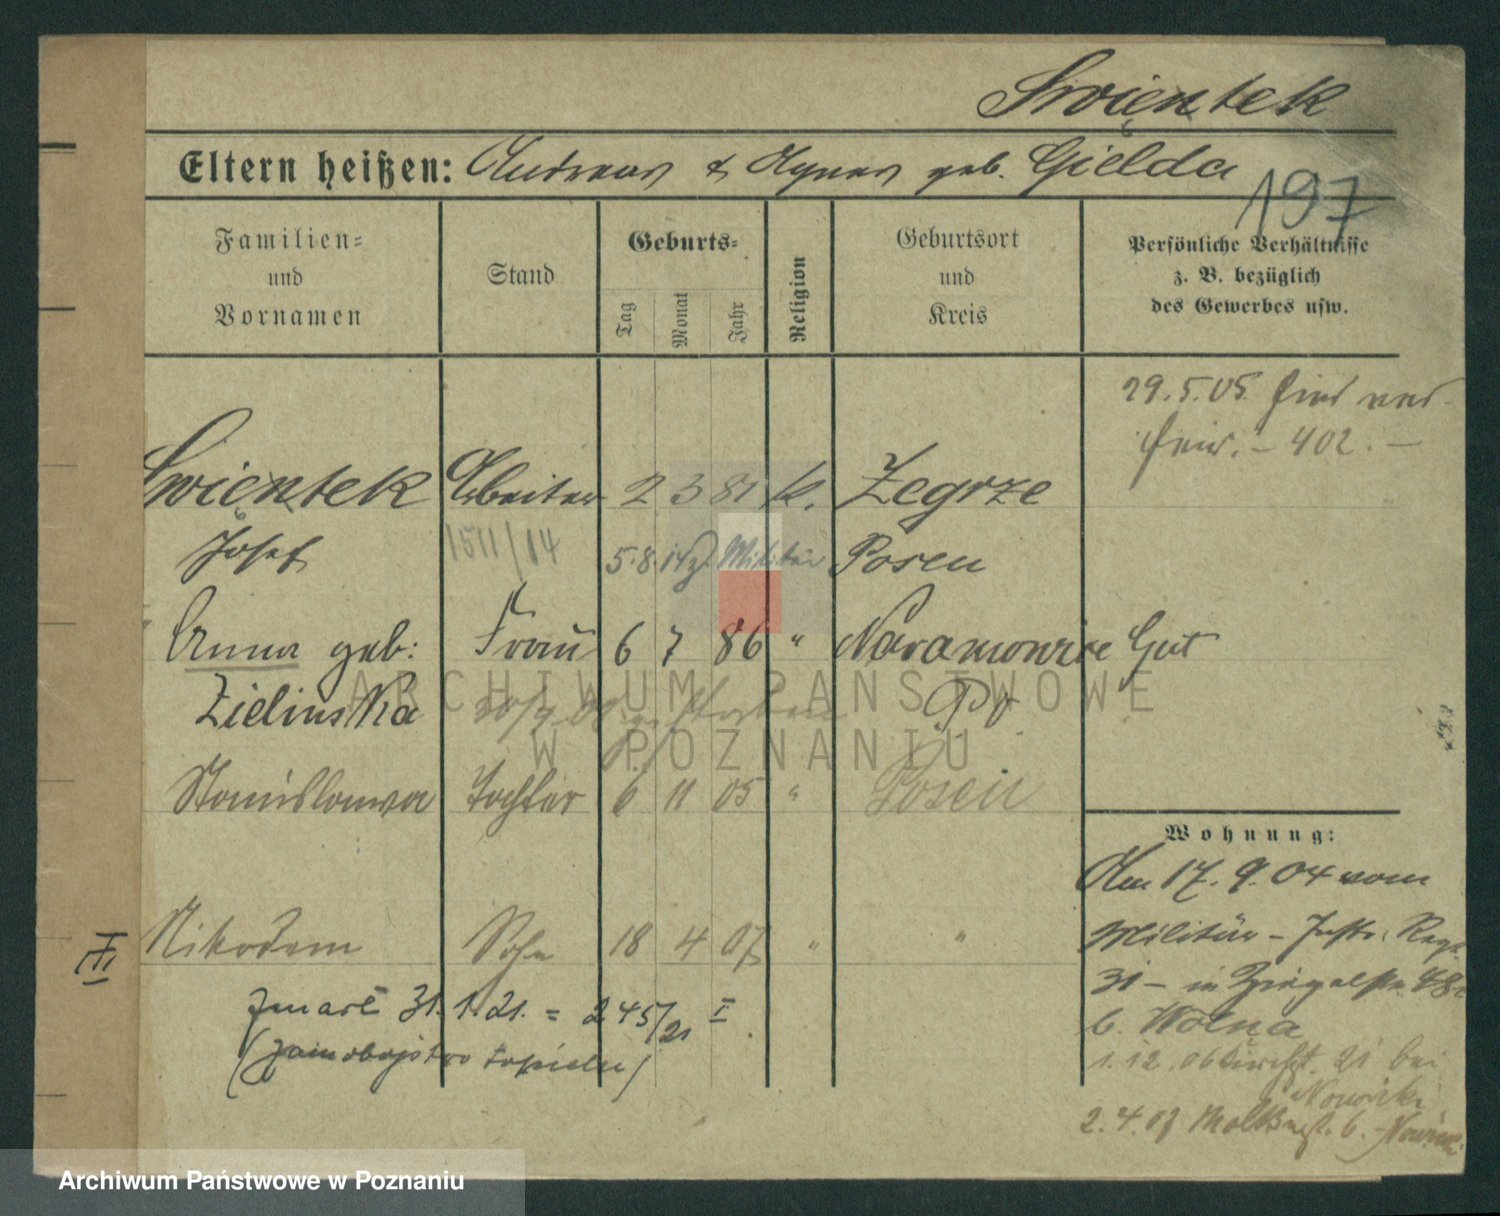 Swientek
Eltern heißen: Andreas & Agnes geb. Gielda
197
Familien= und Vornamen
Stand
Geburts=
Tag Monat Jahr
Religion
Geburtsort und Kreis
Persönliche Verhältnisse
z. B. bezüglich
des Gewerbes usw.
29.5.05. hier ver-
heir. - 402. -
Swientek Arbeiter 2 3 81 k. Zegrze
Josef 1511/14 5.8.14 z. Militär Posen
Anna geb: Frau 6 7 86 " Naramowice Gut
Zielinska gestorben PO
Stanislawa Tochter 6 11 05 " Posen
Nikodem Sohn 18 4 07 " "
zmarł 31.1.21. = 245/21 I
(samobójstwo )
III
Wohnung:
Am 17. 9. 04 vom
Militär - Inftr. Regt.
31 - in
b. Wolna
1.12.06 21 bei
Nowicki
2.4.07 6. Nowicki
Archiwum Państwowe w Poznaniu
ARCHIWUM PAŃSTWOWE
W POZNANIU